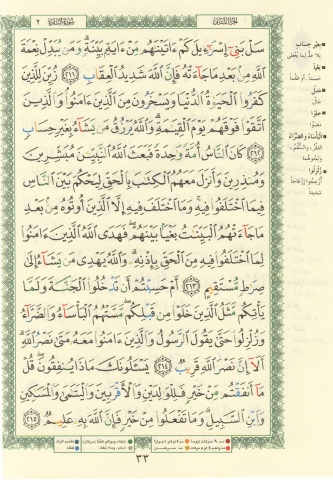 الجزء الثاني
سورة البقرة ٢
سَلْ بَنِىٓ إِسْرَٰٓءِيلَ كَمْ ءَاتَيْنَٰهُم مِّنْ ءَايَةٍۭ بَيِّنَةٍ ۗ وَمَن يُبَدِّلْ نِعْمَةَ
ٱللَّهِ مِنۢ بَعْدِ مَا جَآءَتْهُ فَإِنَّ ٱللَّهَ شَدِيدُ ٱلْعِقَابِ ﴿٢١١﴾ زُيِّنَ لِلَّذِينَ
كَفَرُوا۟ ٱلْحَيَوٰةُ ٱلدُّنْيَا وَيَسْخَرُونَ مِنَ ٱلَّذِينَ ءَامَنُوا۟ ۘ وَٱلَّذِينَ
ٱتَّقَوْا۟ فَوْقَهُمْ يَوْمَ ٱلْقِيَٰمَةِ ۗ وَٱللَّهُ يَرْزُقُ مَن يَشَآءُ بِغَيْرِ حِسَابٍ
﴿٢١٢﴾ كَانَ ٱلنَّاسُ أُمَّةً وَٰحِدَةً فَبَعَثَ ٱللَّهُ ٱلنَّبِيِّۦنَ مُبَشِّرِينَ
وَمُنذِرِينَ وَأَنزَلَ مَعَهُمُ ٱلْكِتَٰبَ بِٱلْحَقِّ لِيَحْكُمَ بَيْنَ ٱلنَّاسِ
فِيمَا ٱخْتَلَفُوا۟ فِيهِ ۚ وَمَا ٱخْتَلَفَ فِيهِ إِلَّا ٱلَّذِينَ أُوتُوهُ مِنۢ بَعْدِ
مَا جَآءَتْهُمُ ٱلْبَيِّنَٰتُ بَغْيًۢا بَيْنَهُمْ ۖ فَهَدَى ٱللَّهُ ٱلَّذِينَ ءَامَنُوا۟
لِمَا ٱخْتَلَفُوا۟ فِيهِ مِنَ ٱلْحَقِّ بِإِذْنِهِۦ ۗ وَٱللَّهُ يَهْدِى مَن يَشَآءُ إِلَىٰ
صِرَٰطٍ مُّسْتَقِيمٍ ﴿٢١٣﴾ أَمْ حَسِبْتُمْ أَن تَدْخُلُوا۟ ٱلْجَنَّةَ وَلَمَّا
يَأْتِكُم مَّثَلُ ٱلَّذِينَ خَلَوْا۟ مِن قَبْلِكُم ۖ مَّسَّتْهُمُ ٱلْبَأْسَآءُ وَٱلضَّرَّآءُ
وَزُلْزِلُوا۟ حَتَّىٰ يَقُولَ ٱلرَّسُولُ وَٱلَّذِينَ ءَامَنُوا۟ مَعَهُۥ مَتَىٰ نَصْرُ ٱللَّهِ ۗ
أَلَآ إِنَّ نَصْرَ ٱللَّهِ قَرِيبٌ ﴿٢١٤﴾ يَسْـَٔلُونَكَ مَاذَا يُنفِقُونَ ۖ قُلْ
مَآ أَنفَقْتُم مِّنْ خَيْرٍ فَلِلْوَٰلِدَيْنِ وَٱلْأَقْرَبِينَ وَٱلْيَتَٰمَىٰ وَٱلْمَسَٰكِينِ
وَٱبْنِ ٱلسَّبِيلِ ۗ وَمَا تَفْعَلُوا۟ مِنْ خَيْرٍ فَإِنَّ ٱللَّهَ بِهِۦ عَلِيمٌ ﴿٢١٥﴾
بغير حساب
بغياً
خلوا
البأساء والضراء
زلزلوا
٣٣